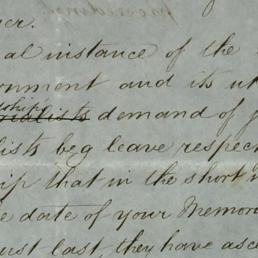 er.
al instance of the
ernment and its ut
demand of f
lists beg leave respec
ip that in the short
e date of your Memor
ust last, they have asc